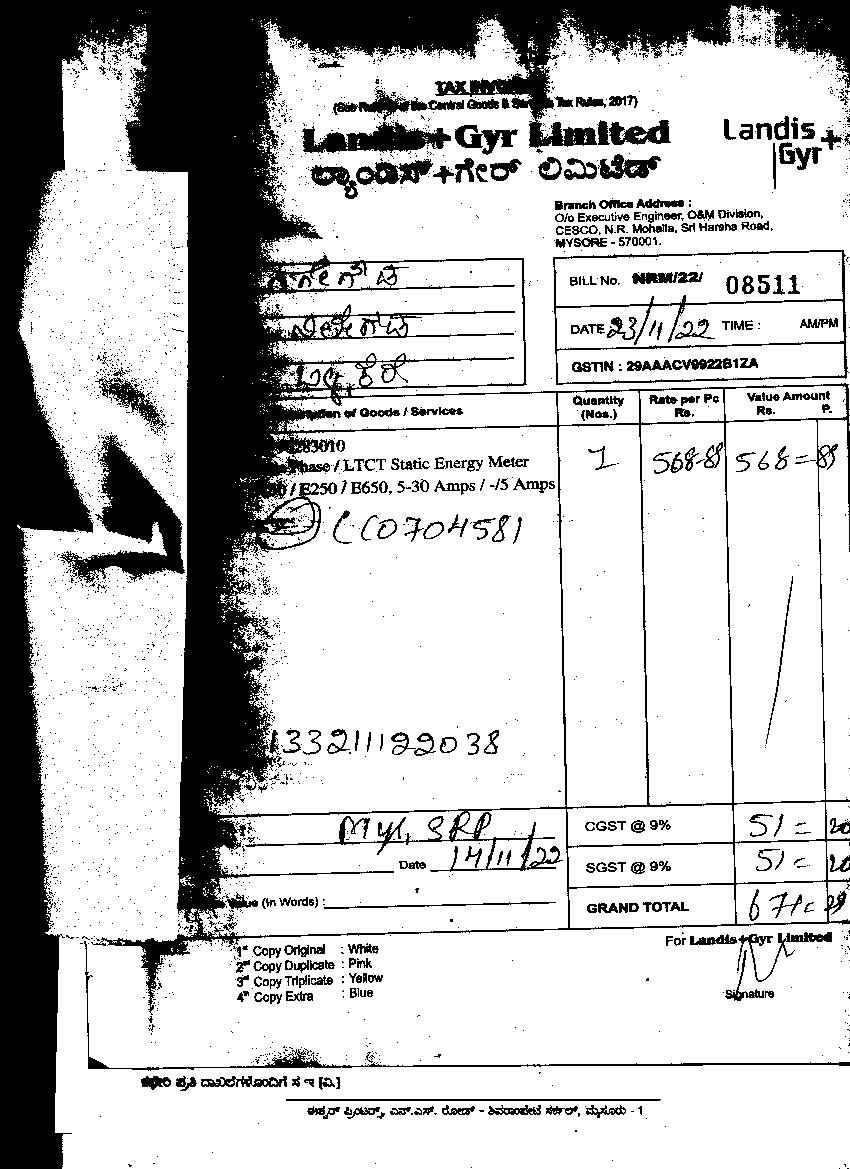 TAX INVOICE
(See Rule of the Central Goods & Services Tax Rules, 2017)
Landis+Gyr Limited
ಲ್ಯಾಂಡಿಸ್+ಗೇರ್ ಲಿಮಿಟೆಡ್
Landis
Gyr+
Branch Office Address :
O/o Executive Engineer, O&M Division,
CESCO, N.R. Mohalla, Sri Harsha Road,
MYSORE - 570001.
BILL No. NRM/22/ 08511
DATE 23/11/22 TIME : AM/PM
GSTIN : 29AAACV9922B1ZA
of Goods / Services
Quantity (Nos.)
Rate per Pc Rs.
Value Amount Rs. P.
283010
Phase / LTCT Static Energy Meter
/ E250 / E650, 5-30 Amps / -/5 Amps
1 568-89 568=89
CC0704581
133211122038
CGST @ 9% 51= 20
Date 14/11/22
SGST @ 9% 51= 20
(In Words) :
GRAND TOTAL 671= 29
For Landis+Gyr Limited
1st Copy Original : White
2nd Copy Duplicate : Pink
3rd Copy Triplicate : Yellow
4th Copy Extra : Blue
Signature
ಪ್ರತಿ ದಾಖಲೆಗಳೊಂದಿಗೆ
ಈಶ್ವರ್ ಪ್ರಿಂಟರ್ಸ್, ಎನ್.ಎಸ್. ರೋಡ್ - ಶಿವರಾಂಪೇಟೆ ಸರ್ಕಲ್, ಮೈಸೂರು - 1